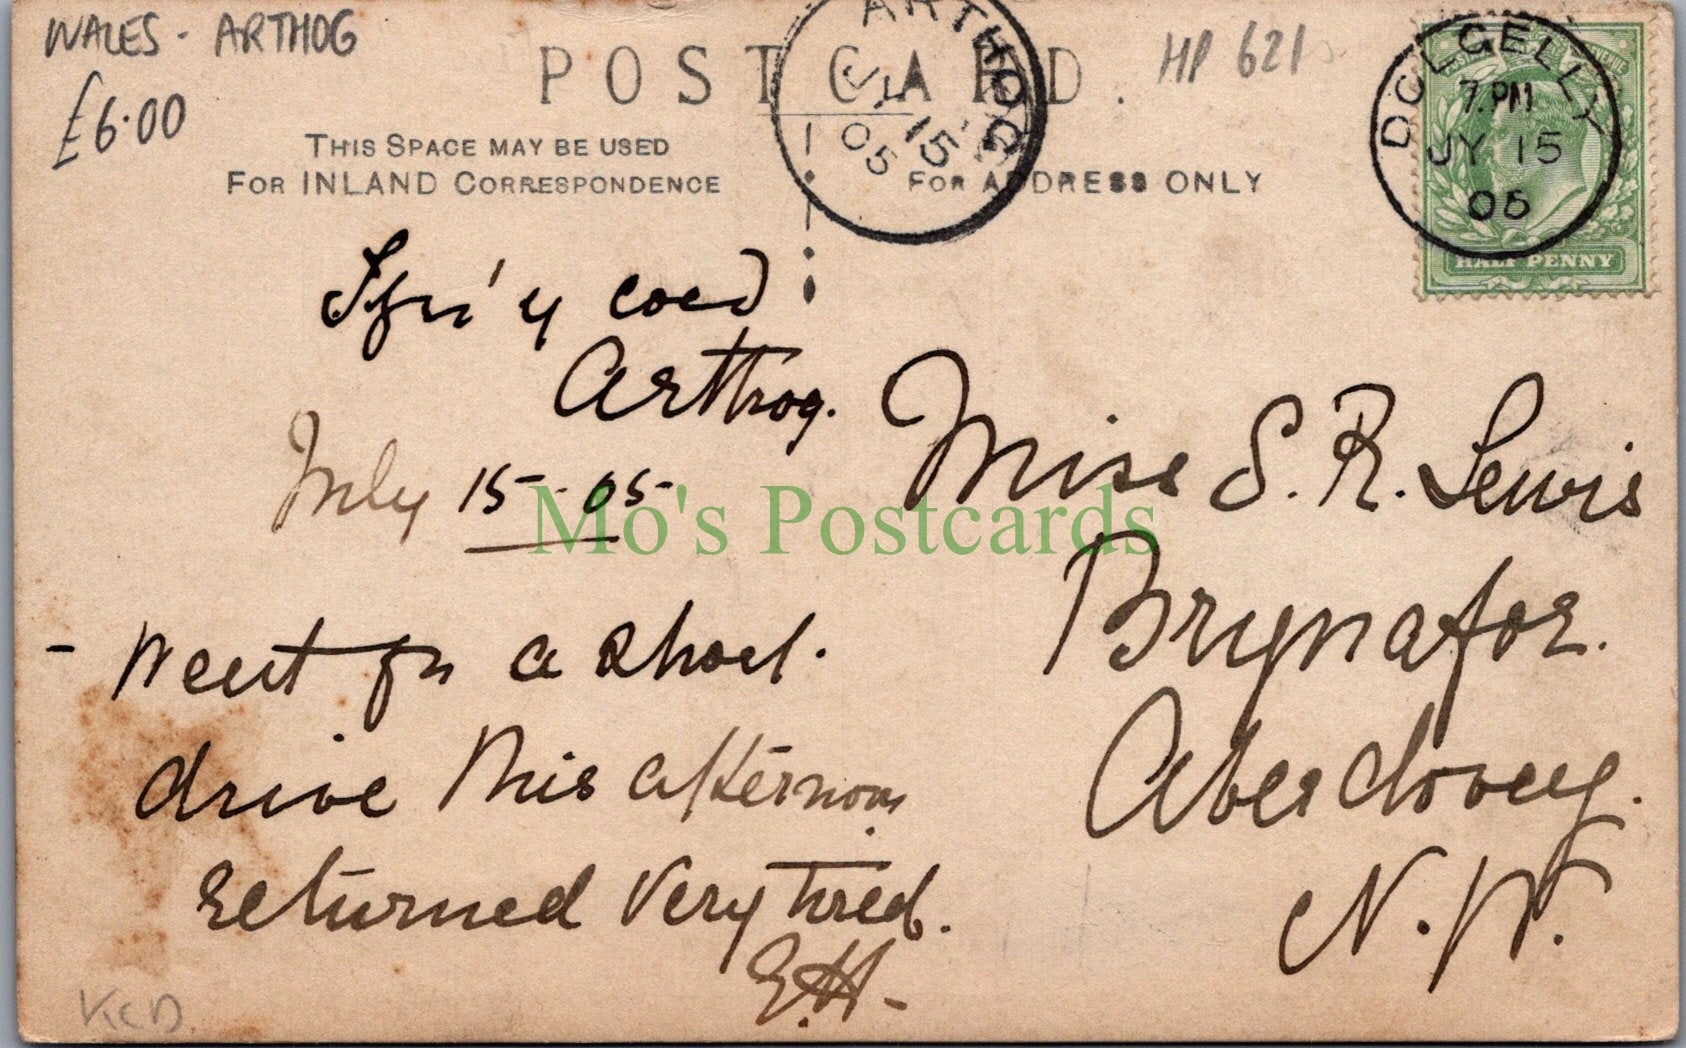 WALES - ARTHOG
£6.00
POST CARD.
HP 621
THIS SPACE MAY BE USED
FOR INLAND CORRESPONDENCE
FOR ADDRESS ONLY
ARTHOG
JY 15
05
DOLGELLY
7. PM
JY 15
05
HALF PENNY
'y coed
Arthog.
July 15-05-
Mo's Postcards
- Went for a short
drive this afternoon
returned very tired.
E.H-
Miss S. R. Lewis
Brynafor.
Aberdovey.
N. W.
KCD